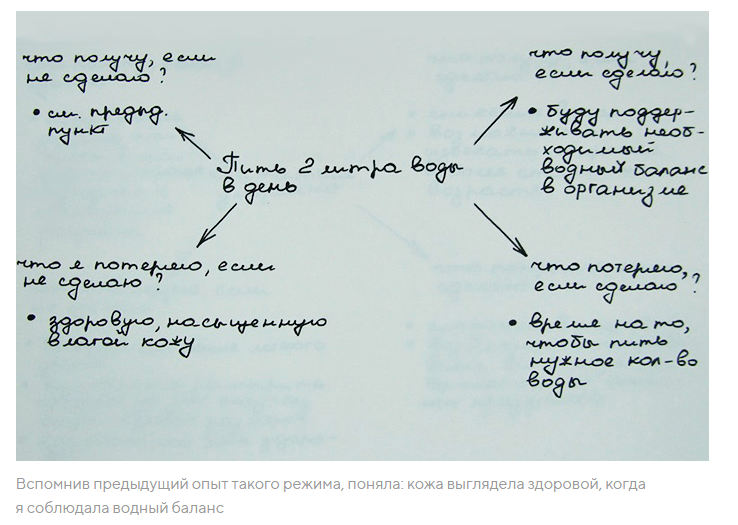 что получу, если
не сделаю?
• см. предыд.
пункт
что получу,
если сделаю?
• буду поддер-
живать необ-
ходимый
водный баланс
в организме
Пить 2 литра воды
в день
что я потеряю, если
не сделаю?
• здоровую, насыщенную
влагой кожу
что потеряю,
если сделаю?
• время на то,
чтобы пить
нужное кол-во
воды
Вспомнив предыдущий опыт такого режима, поняла: кожа выглядела здоровой, когда
я соблюдала водный баланс